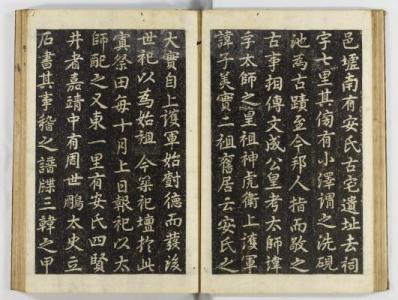 邑墟南有安氏古宅遺址去祠
宇七里其傍有小澤謂之洗硯
池為古蹟至今邦人指而敬之
古事相傳文成公皇考太師諱
孚太師之皇祖神虎衛上護軍
諱子美實二祖舊居云安氏之
大實自上護軍始對德而發後
世祀以為始祖今築祀壇於此
寘祭田每十月上日報祀以太
師配之又東一里有安氏四賢
井者嘉靖中有周世鵬太史立
石書其事稽之譜牒三韓之甲